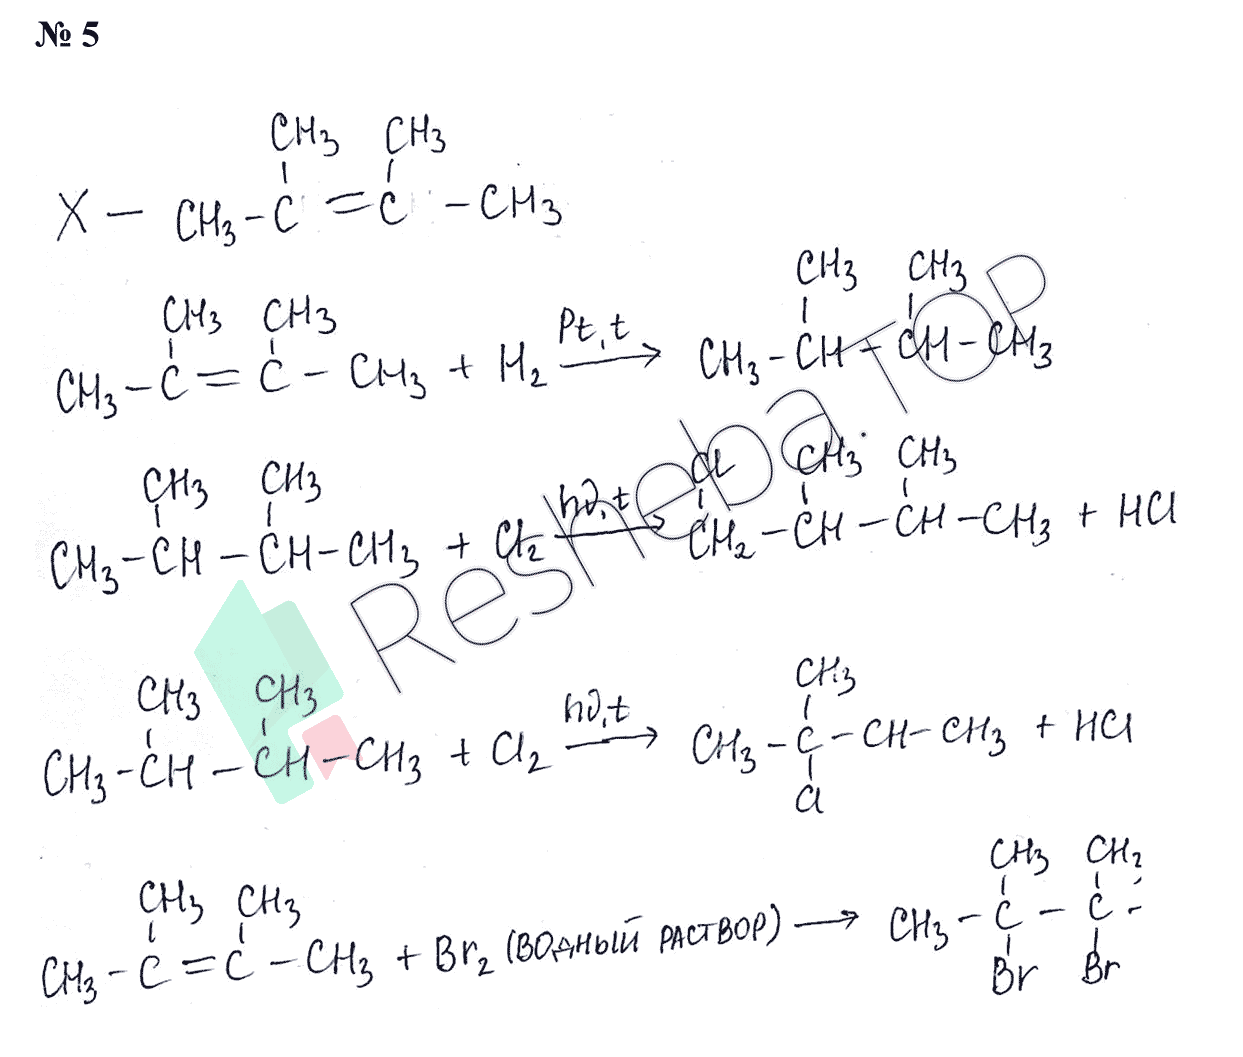 № 5
CH3 CH3
X – CH3-C=C-CH3
CH3 CH3
CH3-C=C-CH3 + H2 Pt, t → CH3-CH-CH-CH3
CH3 CH3
CH3 CH3
CH3-CH-CH-CH3 + Cl2 hν, t → CH2-CH-CH-CH3 + HCl
Cl CH3 CH3
CH3 CH3
CH3-CH-CH-CH3 + Cl2 hν, t → CH3-C-CH-CH3 + HCl
CH3
Cl
CH3 CH3
CH3-C=C-CH3 + Br2 (ВОДНЫЙ РАСТВОР) → CH3-C-C-
CH3 CH3
Br Br
Resheba.TOP